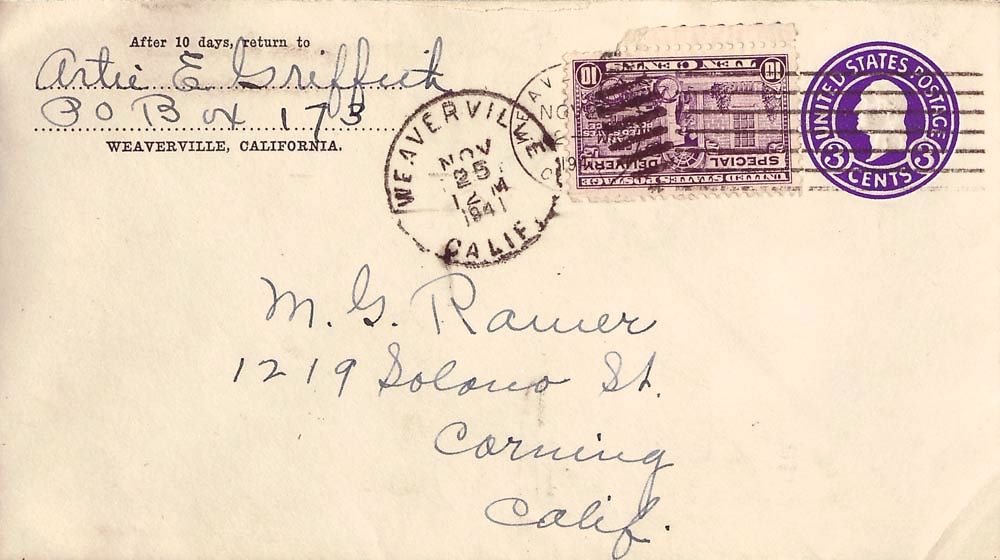 After 10 days, return to
Artie E Griffith
P O Box 173
WEAVERVILLE, CALIFORNIA.
WEAVERVILLE
NOV
25
12 M
1941
CALIF.
WEAV
NOV
19
TEN CENTS
10 10
SPECIAL
DELIVERY
UNITED STATES POSTAGE
UNITED STATES POSTAGE
3 CENTS 3
M. G. Ramer
1219 Solono St.
Corning
Calif.